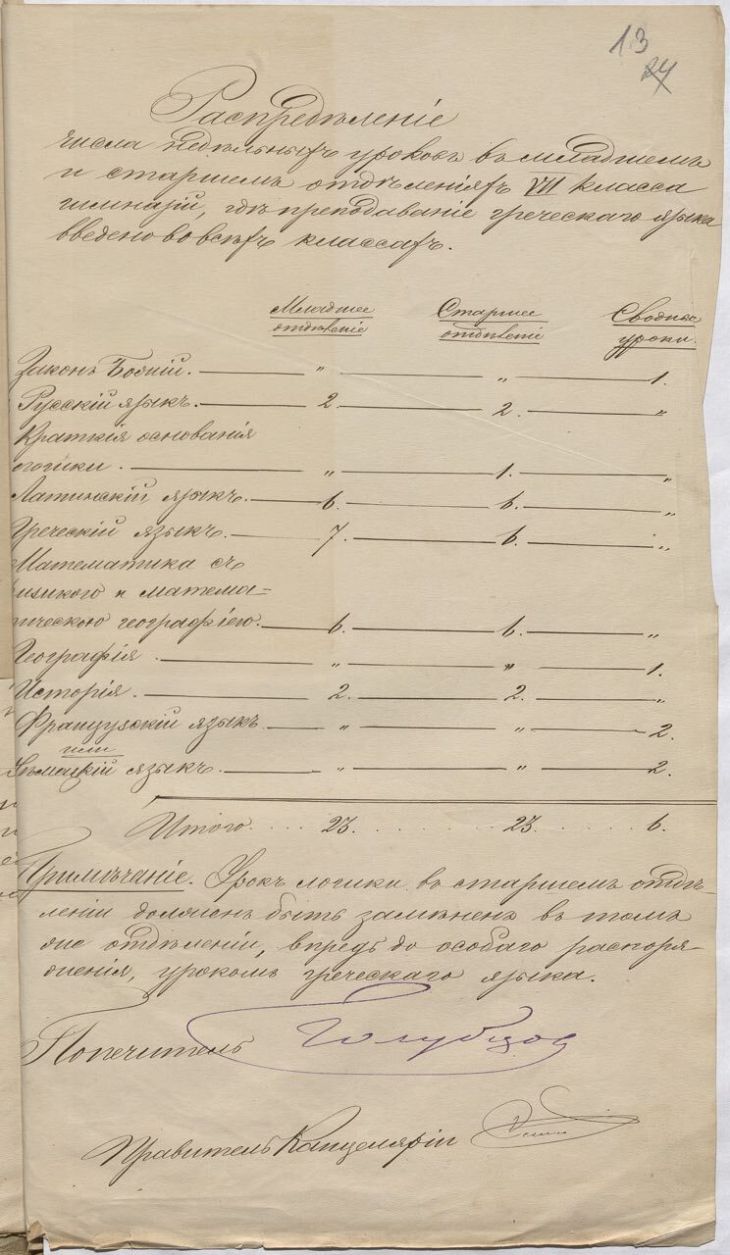 13
24
Распредѣленіе
числа недѣльныхъ уроковъ въ младшемъ
и старшемъ отдѣленіяхъ VII класса
гимназій, гдѣ преподаваніе греческаго языка
введено во всѣхъ классахъ.
Младшее отдѣленіе Старшее отдѣленіе Сводные уроки.
Законъ Божій. — „ — „ — 1.
Русскій языкъ. — 2. — 2. — „
Краткія основанія
логики. — „ — 1. — „
Латинскій языкъ. — 6. — 6. — „
Греческій языкъ. — 7. — 6. — „
Математика съ
физикою и матема-
тическою географіею. — 6. — 6. — „
Географія. — „ — „ — 1.
Исторія. — 2. — 2. — „
Французскій языкъ — „ — „ — 2.
или
Нѣмецкій языкъ. — „ — „ — 2.
Итого. . . . 23. . . . . 23. . . . . 6.
Примѣчаніе. Урокъ логики въ старшемъ отдѣ-
леніи долженъ быть замѣненъ въ томъ
же отдѣленіи, впредь до особаго распоря-
женія, урокомъ греческаго языка.
Попечитель Голубцов
Правитель Канцеляріи